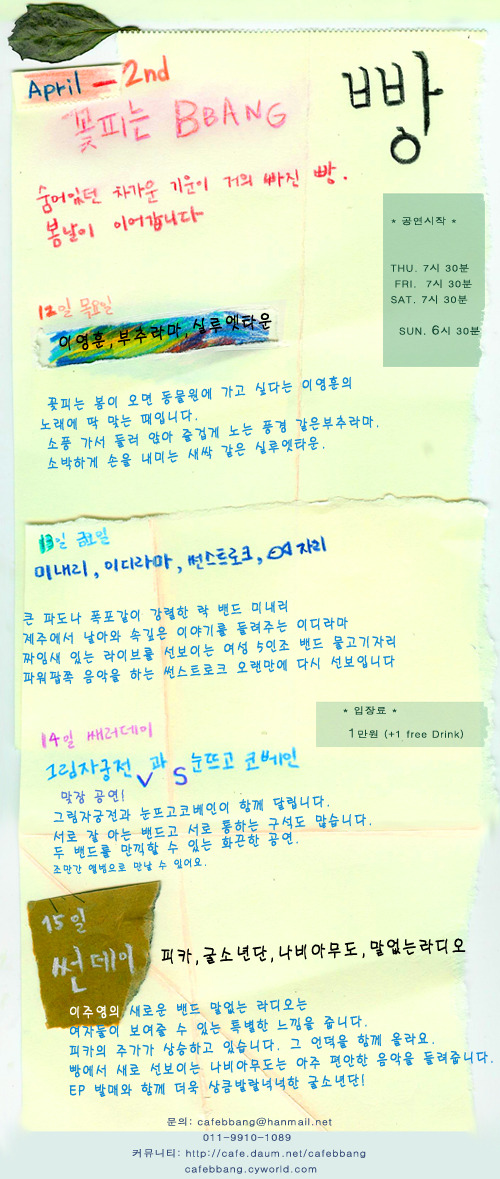 April - 2nd
빵
꽃피는 BBANG
숨어있던 차가운 기운이 거의 빠진 빵.
봄날이 이어갑니다
* 공연시작 *
THU. 7시 30분
FRI. 7시 30분
SAT. 7시 30분
SUN. 6시 30분
12일 목요일
이영훈, 부추라마, 실루엣타운
꽃피는 봄이 오면 동물원에 가고 싶다는 이영훈의
노래에 딱 맞는 때입니다.
소풍 가서 둘러 앉아 즐겁게 노는 풍경 같은부추라마.
소박하게 손을 내미는 새싹 같은 실루엣타운.
13일 금요일
미내리, 이디라마, 썬스트로크, 자리
큰 파도나 폭포같이 강렬한 락 밴드 미내리
제주에서 날아와 속깊은 이야기를 들려주는 이디라마
짜임새 있는 라이브를 선보이는 여성 5인조 밴드 물고기자리
파워팝쪽 음악을 하는 썬스트로크 오랜만에 다시 선보입니다
* 입장료 *
1만원 (+1 free Drink)
14일 쌔러데이
그림자궁전 과 눈뜨고 코베인
V S
맞장 공연!
그림자궁전과 눈뜨고코베인이 함께 달립니다.
서로 잘 아는 밴드고 서로 통하는 구석도 많습니다.
두 밴드를 만끽할 수 있는 화끈한 공연.
조만간 앨범으로 만날 수 있어요.
15일
썬데이
피카,굴소년단,나비아무도,말없는라디오
이주영의 새로운 밴드 말없는 라디오는
여자들이 보여줄 수 있는 특별한 느낌을 줍니다.
피카의 주가가 상승하고 있습니다. 그 언덕을 함께 올라요.
빵에서 새로 선보이는 나비아무도는 아주 편안한 음악을 들려줍니다.
EP 발매와 함께 더욱 상큼발랄넉넉한 굴소년단!
문의: cafebbang@hanmail.net
011-9910-1089
커뮤니티: http://cafe.daum.net/cafebbang
cafebbang.cyworld.com